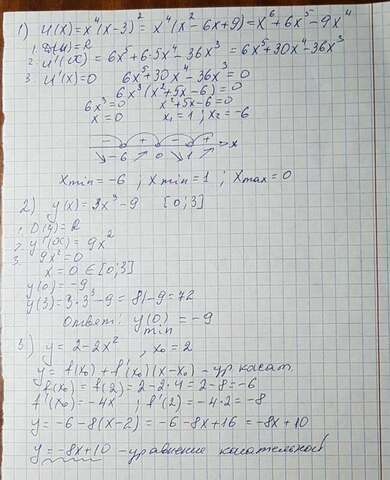 1) y(x) = x⁴(x-3)² = x⁴(x²-6x+9) = x⁶+6x⁵-9x⁴
2. y'(x) = 6x⁵+6·5x⁴-36x³ = 6x⁵+30x⁴-36x³
3. y'(x)=0 6x⁵+30x⁴-36x³=0
6x³(x²+5x-6)=0
6x³=0 x²+5x-6=0
x=0 x₁=1; x₂=-6
- + - + x
-6 0 1
Xmin=-6; Xmin=1; Xmax=0
2) y(x)=3x³-9 [0;3]
1. D(y)=R
2. y'(x)=9x²
3. 9x²=0
x=0 ∈ [0;3]
y(0)=-9
y(3)=3·3³-9=81-9=72
Ответ: y(0)=-9
min
3) y=2-2x², x₀=2
y=f(x₀)+f'(x₀)(x-x₀) - ур касат.
f(x₀)=f(2)=2-2·4=2-8=-6
f'(x₀)=-4x; f'(2)=-4·2=-8
y=-6-8(x-2)=-6-8x+16=-8x+10
y=-8x+10 - уравнение касательной